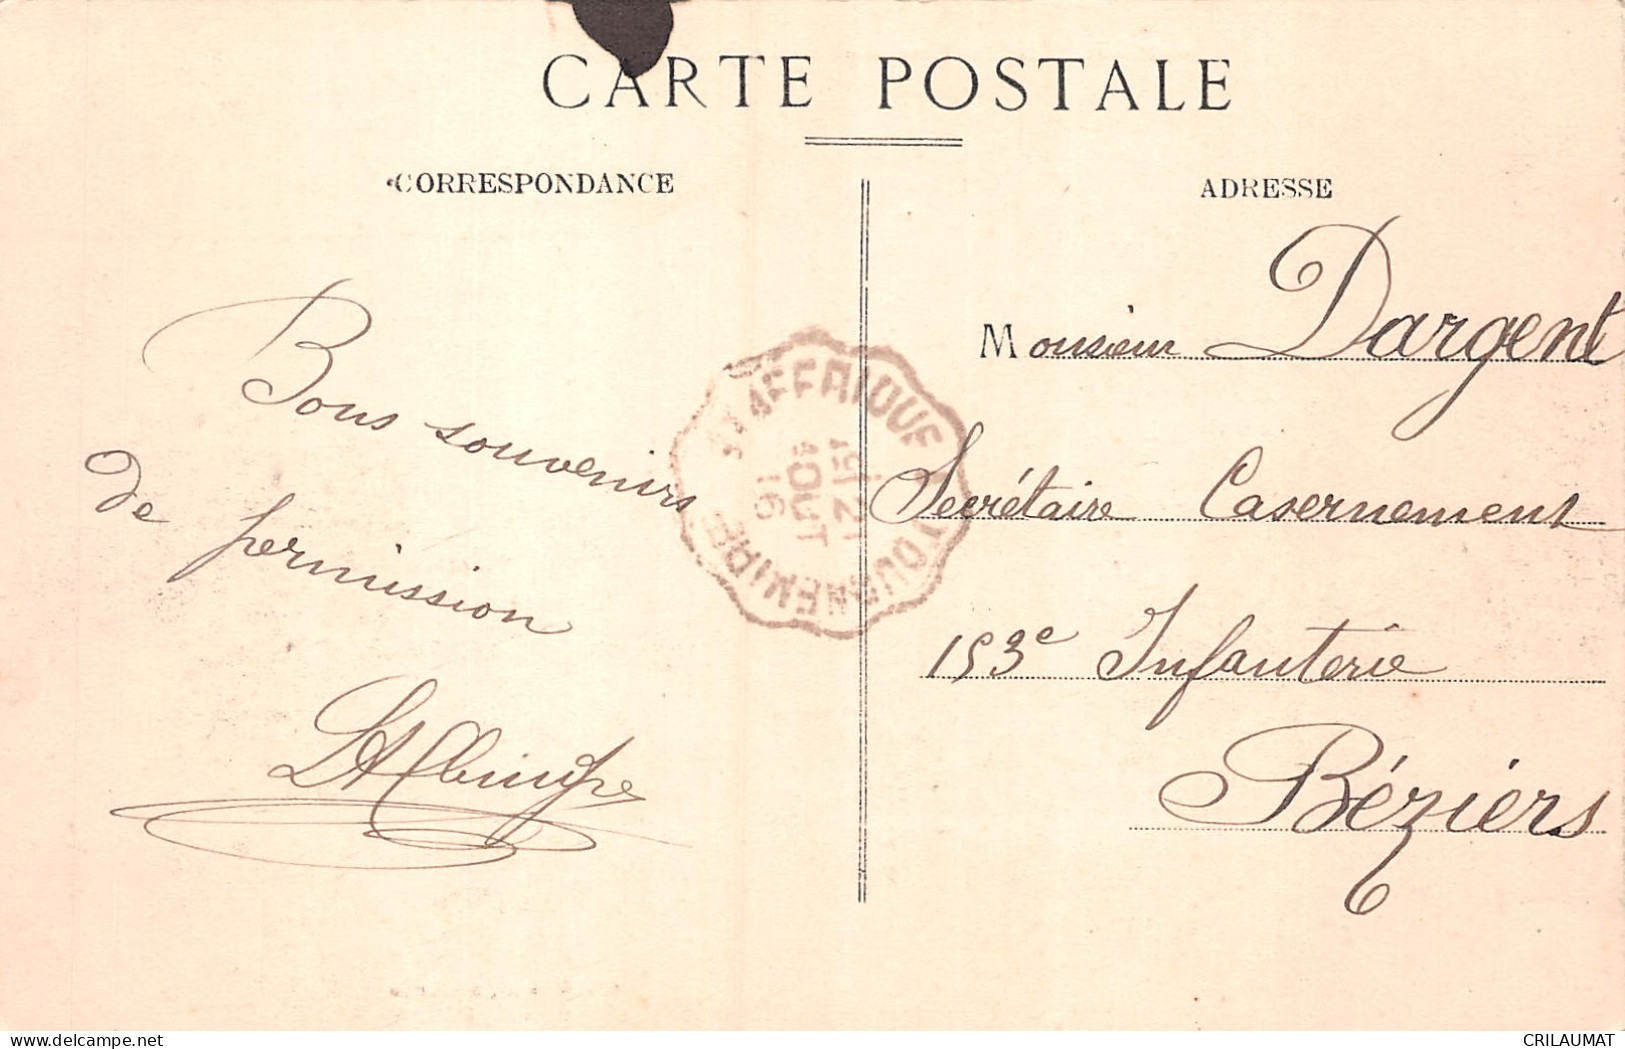 CARTE POSTALE
CORRESPONDANCE
ADRESSE
Bons souvenirs
de permission
Monsieur Dargent
Secrétaire Casernement
153e Infanterie
Béziers
ST AFFRIQUE
21
AOUT
16
TOURNEMIRE
www.delcampe.net
CRILAUMAT